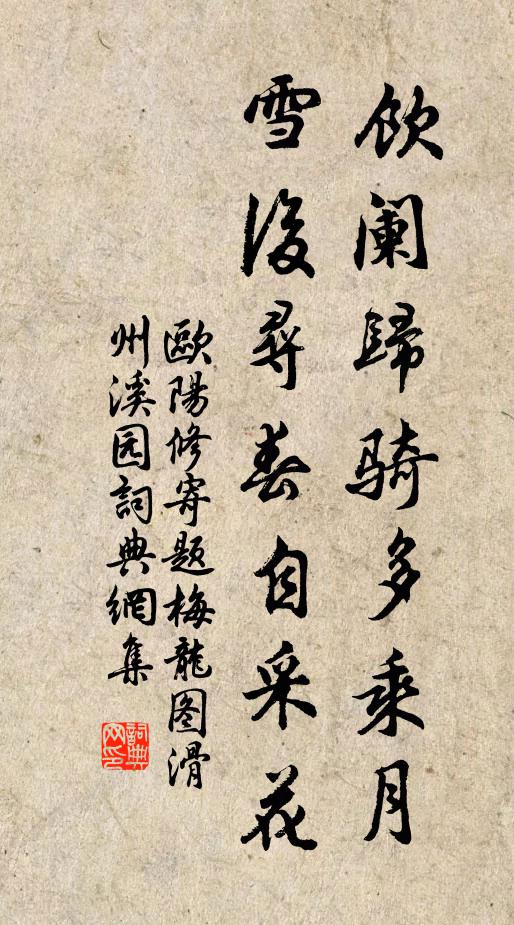 飲阑歸骑多乘月
雪後尋春自采花
歐陽修寄题梅龍图滑
州溪园詞典網集
詞典网印